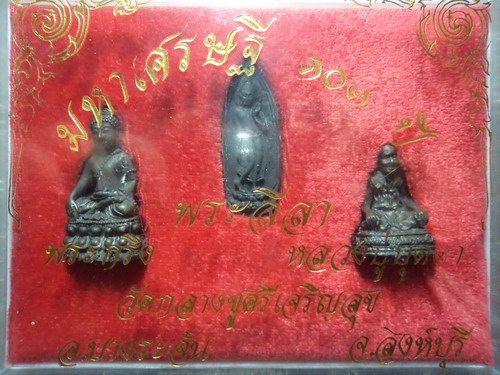 มหาเศรษฐี ๑๐๓ ปี
พระลีลา
พระกริ่ง หลวงปู่บุดดา
วัดกลางชูศรีเจริญสุข
อ.บางระจัน จ.สิงห์บุรี